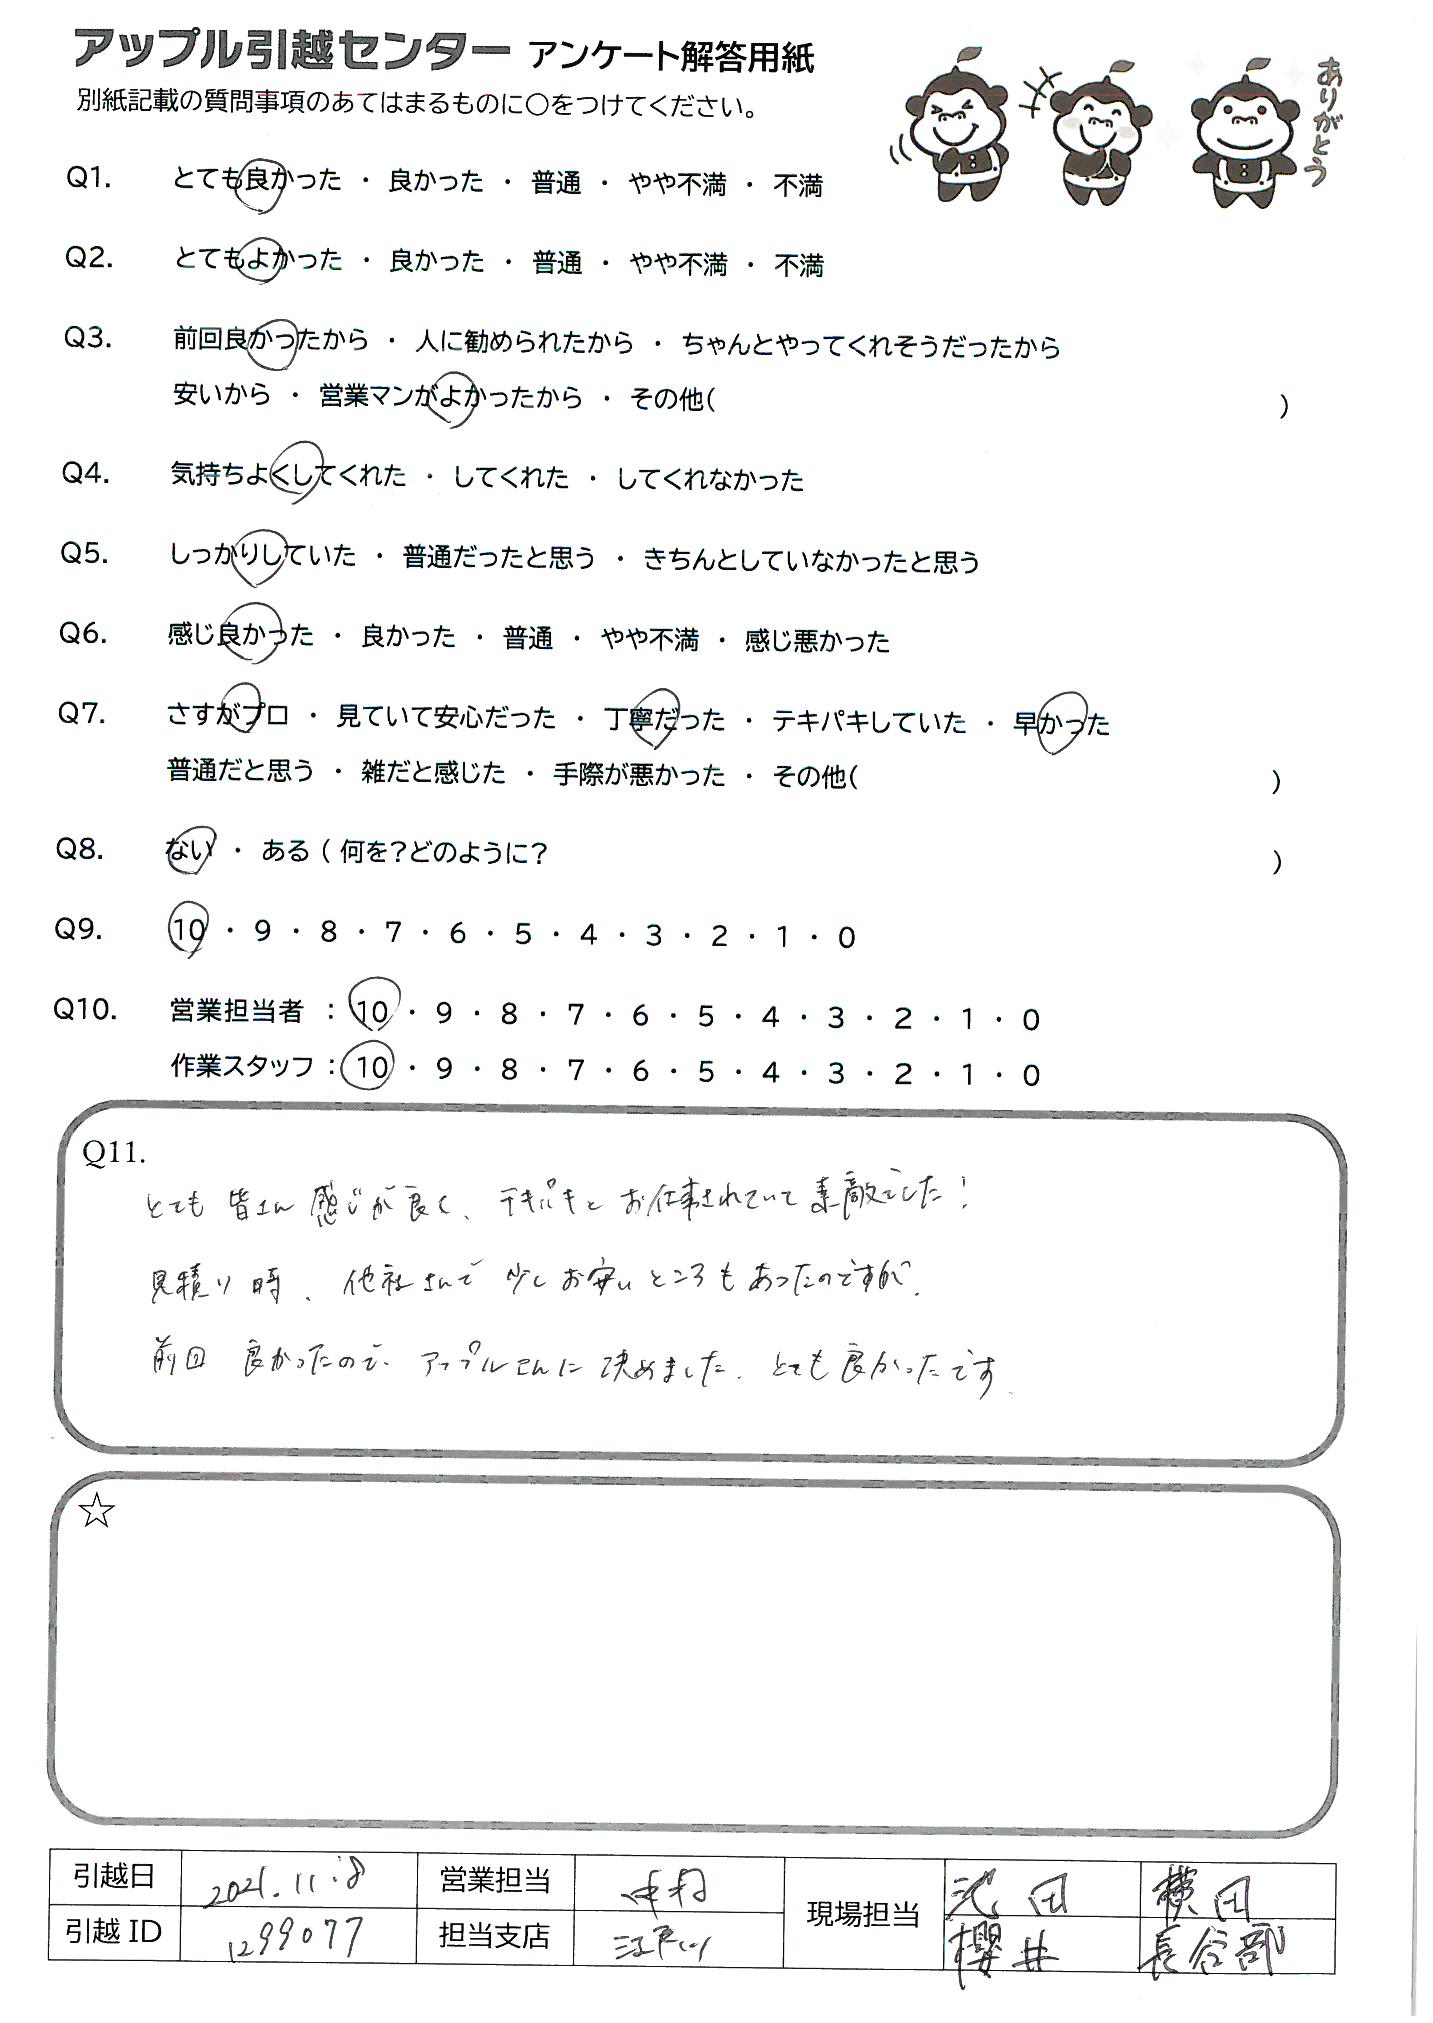 アップル引越センター アンケート解答用紙
別紙記載の質問事項のあてはまるものに○をつけてください。
ありがとう
Q1. とても良かった ・ 良かった ・ 普通 ・ やや不満 ・ 不満
Q2. とてもよかった ・ 良かった ・ 普通 ・ やや不満 ・ 不満
Q3. 前回良かったから ・ 人に勧められたから ・ ちゃんとやってくれそうだったから
安いから ・ 営業マンがよかったから ・ その他( )
Q4. 気持ちよくしてくれた ・ してくれた ・ してくれなかった
Q5. しっかりしていた ・ 普通だったと思う ・ きちんとしていなかったと思う
Q6. 感じ良かった ・ 良かった ・ 普通 ・ やや不満 ・ 感じ悪かった
Q7. さすがプロ ・ 見ていて安心だった ・ 丁寧だった ・ テキパキしていた ・ 早かった
普通だと思う ・ 雑だと感じた ・ 手際が悪かった ・ その他( )
Q8. ない ・ ある ( 何を?どのように? )
Q9. 10 ・ 9 ・ 8 ・ 7 ・ 6 ・ 5 ・ 4 ・ 3 ・ 2 ・ 1 ・ 0
Q10. 営業担当者 : 10 ・ 9 ・ 8 ・ 7 ・ 6 ・ 5 ・ 4 ・ 3 ・ 2 ・ 1 ・ 0
作業スタッフ : 10 ・ 9 ・ 8 ・ 7 ・ 6 ・ 5 ・ 4 ・ 3 ・ 2 ・ 1 ・ 0
Q11.
とても 皆さん 感じが良く、テキパキと お仕事されていて 素敵でした!
見積り時、他社さんで 少しお安いところもあったのですが、
前回 良かったので、アップルさんに 決めました。とても良かったです。
☆
引越日 2021.11.8 営業担当 中村 現場担当 池田 横田
引越 ID 1299077 担当支店 江戸川 櫻井 長谷部